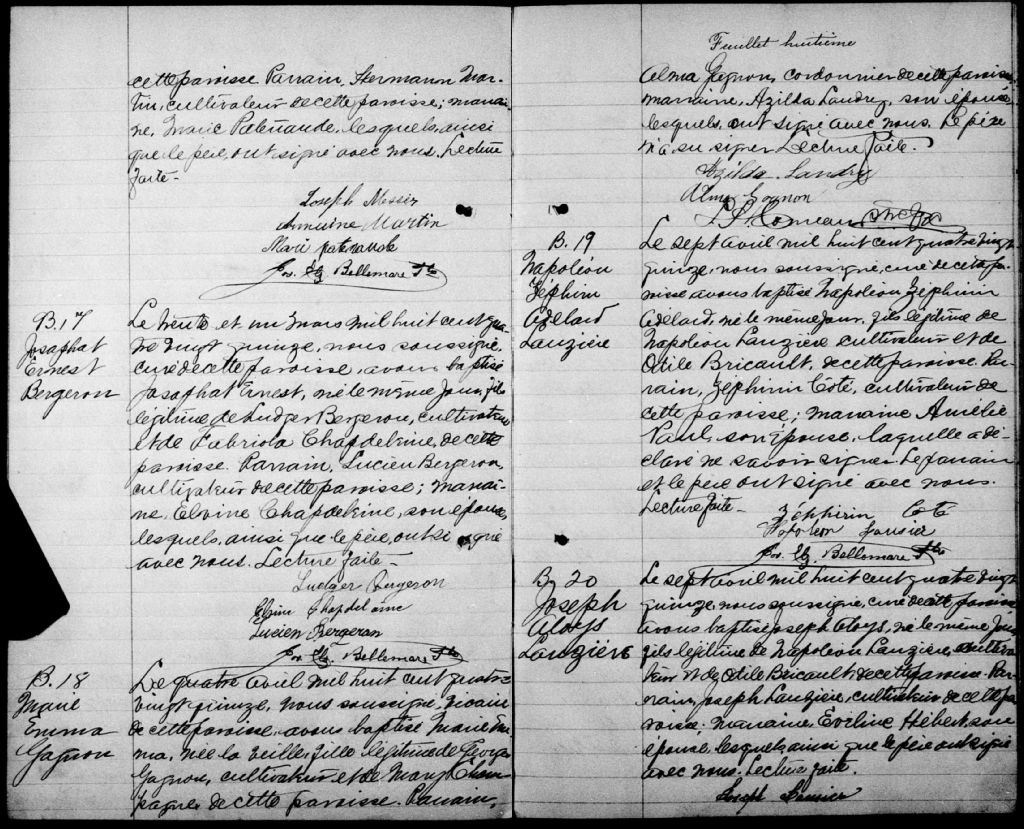 cette paroisse. Parrain, Hermann Mar-
tin, cultivateur de cette paroisse; marrai-
ne, Marie Patenaude, lesquels, ainsi
que le père, ont signé avec nous. Lecture
faite.
Joseph Messier
Martin
Marie patenaude
Jos. El. Bellemare Ptre
B. 17
Josaphat
Ernest
Bergeron
Le trente et un mars mil huit cent qua-
tre vingt quinze, nous soussigné,
curé de cette paroisse, avons baptisé
Josaphat Ernest, né le même jour, fils
légitime de Ludger Bergeron, cultivateur
et de Fabriola Chapdelaine, de cette
paroisse. Parrain, Lucien Bergeron,
cultivateur de cette paroisse; marrai-
ne, Elvine Chapdelaine, son épouse,
lesquels, ainsi que le père, ont signé
avec nous. Lecture faite.
Ludger Bergeron
Chapdelaine
Lucien Bergeron
Jos. El. Bellemare Ptre
B. 18
Marie
Emma
Gagnon
Le quatre avril mil huit cent quatre
vingt quinze, nous soussigné, vicaire
de cette paroisse, avons baptisé Marie Em-
ma, née la veille, fille légitime de George
Gagnon, cultivateur et de Mary Cham-
pagne de cette paroisse. Parrain,
Feuillet huitième
Alma Gagnon, cordonnier de cette paroisse,
marraine, Azilda Landry, son épouse,
lesquels, ont signé avec nous. Le père
n'a su signer. Lecture faite.
Azilda Landry
Alma Gagnon
Comeau
B. 19
Napoléon
Zéphirin
Adélard
Lauzière
Le sept avril mil huit cent quatre vingt
quinze, nous soussigné, curé de cette pa-
roisse avons baptisé Napoléon Zéphirin
Adélard, né le même jour, fils légitime de
Napoléon Lauzière cultivateur et de
Odile Bricault, de cette paroisse. Par-
rain, Zéphirin Coté, cultivateur de
cette paroisse; marraine Amélie
Paul, son épouse, laquelle a dé-
claré ne savoir signer. Le parrain
et le père ont signé avec nous.
Lecture faite.
Zéphirin Coté
Napoleon Lausier
Jos. El. Bellemare Ptre
B. 20
Joseph
Aloys
Lauzière
Le sept avril mil huit cent quatre vingt
quinze, nous soussigné, curé de cette paroisse
avons baptisé Joseph Aloys, né le même jour
fils légitime de Napoléon Lauzière, cultiva-
teur et de Odile Bricault, de cette paroisse. Par-
rain, Joseph Lauzière, cultivateur de cette pa-
roisse; marraine, Eveline Hébert, son
épouse, lesquels, ainsi que le père ont signé
avec nous. Lecture faite.
Joseph Lausier